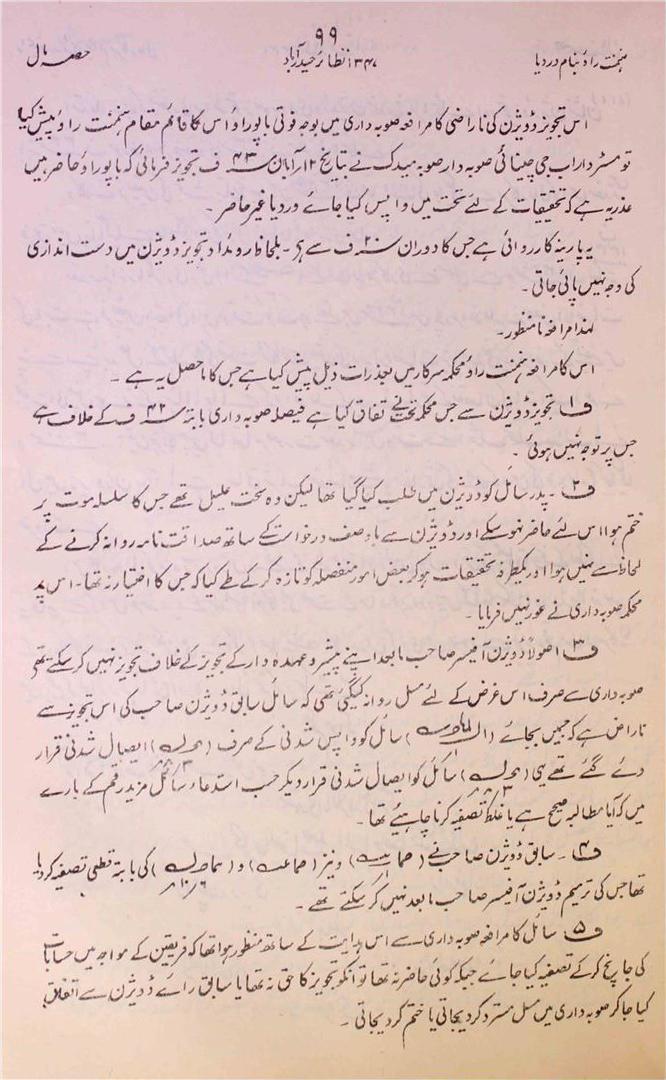 ۹۹
ہنمنت راؤ بنام دردیا
۱۳۴۷ نظائر حیدرآباد
حصہ مال
اس تجویز ڈویژن کی ناراضی کا مرافعہ صوبہ داری میں بوجہ فوتی باپوراؤ اس کا قائم مقام ہنمنت راؤ پیش کیا
تو مسٹر داراب جی چینائی صوبہ دار صوبہ میدک نے بتاریخ ۱۲ آبان ۴۳ ف تجویز فرمائی کہ باپوراؤ حاضر ہیں
عذر یہ ہے کہ تحقیقات کے لئے تحت میں واپس کیا جائے وردیا غیر حاضر۔
یہ پارینہ کارروائی ہے جس کا دوران ف سے ہے۔ بلحاظ روئداد تجویز ڈویژن میں دست اندازی
کی وجہ نہیں پائی جاتی۔
لہذا مرافعہ نامنظور۔
اس کا مرافعہ ہنمنت راؤ محکمہ سرکار میں بعذرات ذیل پیش کیا ہے جس کا ماحصل یہ ہے۔
ف۱ تجویز ڈویژن سے جس محکمہ تحت نے اتفاق کیا ہے فیصلہ صوبہ داری بابتہ ۴۲ ف کے خلاف ہے
جس پر توجہ نہیں ہوئی۔
ف۲۔ پدر سائل کو ڈویژن میں طلب کیا گیا تھا لیکن وہ سخت علیل تھے جس کا سلسلہ موت پر
ختم ہوا اس لئے حاضر نہو سکے اور ڈویژن سے باوصف درخواست کے ساتھ صداقت نامہ روانہ کرنے کے
لحاظ سے نہیں ہوا اور یکطرفہ تحقیقات ہو کر بعض امور منفصلہ کو تازہ کر کے طے کیا کہ جس کا اختیار نہ تھا۔ اس پر
محکمہ صوبہ داری نے غور نہیں فرمایا۔
ف۳ اصولاً ڈویژن آفیسر صاحب مابعد اپنے پیشرو عہدہ دار کے تجویز کے خلاف تجویز نہیں کر سکتے تھے
صوبہ داری سے صرف اس غرض کے لئے مسل روانہ کیگئی تھی کہ سائل سابق ڈویژن صاحب کی اس تجویز سے
ناراض ہے کہ جسمیں بجائے ( ) سائل کو واپس شدنی کے صرف ( ) ایصال شدنی قرار
دئے گئے تھے یہی ( ) سائل کو ایصال شدنی قرار دیکر حسب استدعاء سائل مزید رقم کے بارے
میں کہ آیا مطالبہ صحیح ہے یا غلط تصفیہ کرنا چاہیئے تھا۔
ف۴۔ سابق ڈویژن صاحب نے ( ) و نیز ( ) و ( ) کی بابتہ قطعی تصفیہ کردیا
تھا جس کی ترمیم ڈویژن آفیسر صاحب مابعد نہیں کر سکتے تھے۔
ف۵ سائل کا مرافعہ صوبہ داری سے اس ہدایت کے ساتھ منظور ہوا تھا کہ فریقین کے مواجہ میں حسابات
کی جانچ کر کے تصفیہ کیا جائے جبکہ کوئی حاضر نہ تھا تو انکو تجویز کا حق نہ تھا یا سابق رائے ڈویژن سے اتفاق
کیا جا کر صوبہ داری میں مسل مسترد کر دیجاتی یا ختم کر دیجاتی۔